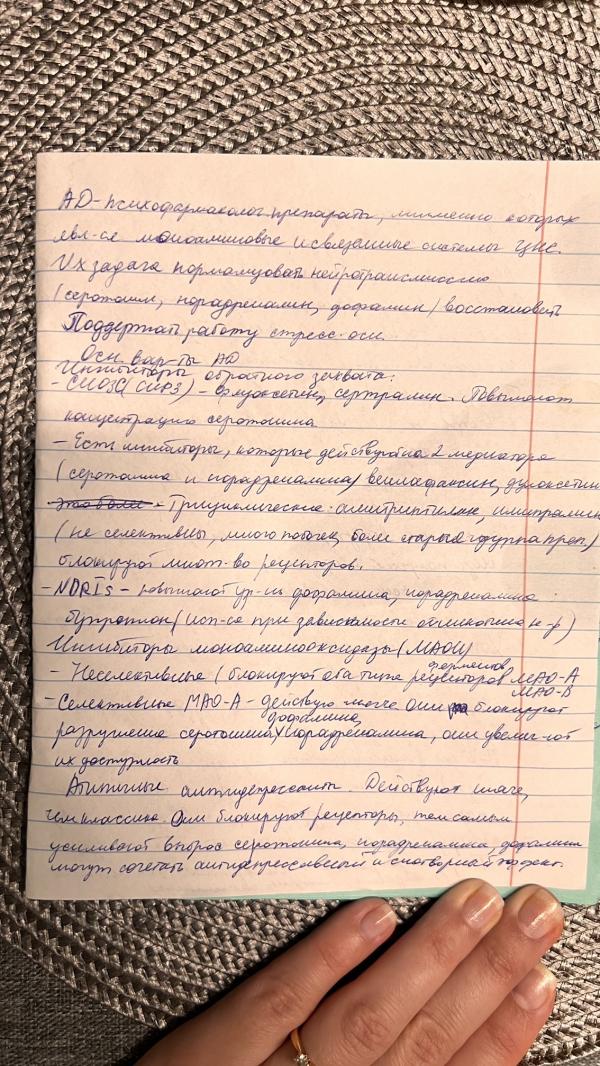 АД-психофармаколог. препараты, мишенью которых
явл-ся моноаминовые и связанные системы ЦНС.
Их задача нормализовать нейротрансмиссию
(серотонин, норадреналин, дофамин) восстановить
Поддержать работу стресс-оси.
Осн. вар-ты АД
Ингибиторы обратного захвата:
- СИОЗС (СИРЗ) - флуоксетин, сертралин. Повышают
концентрацию серотонина
- Есть ингибиторы, которые действуют на 2 медиатора
(серотонина и норадреналина) венлафаксин, дулоксетин
- Трициклические - амитриптилин, имипрамин
(не селективны, много побочек, более старая группа преп.)
блокируют множ-во рецепторов.
- NDRIs - повышают ур-нь дофамина, норадреналина
бупропион (исп-ся при зависимости от никотина н-р)
Ингибиторы моноаминооксидазы (МАОИ)
- Неселективные (блокируют оба типа рецепторов ферментов МАО-А
МАО-В
- Селективные МАО-А - действую мягче они блокируют
разрушение серотонина, дофамина, норадреналина, они увелич-ют
их доступность
Атипичные антидепрессанты. Действуют иначе,
чем классика. Они блокируют рецепторы, тем самым
усиливают выброс серотонина, норадреналина, дофамин
могут сочетать антидепрессивный и снотворный эффект.